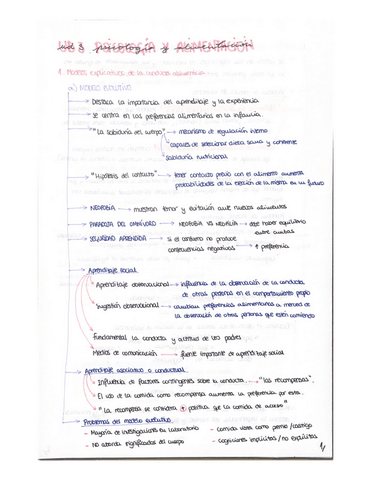 Ud 3 PSICOLOGÍA Y ALIMENTACIÓN
1. Modelos explicativos de la conducta alimentaria
a) MODELO EVOLUTIVO
→ Destaca la importancia del aprendizaje y la experiencia
→ Se centra en las preferencias alimentarias en la infancia
→ "La sabiduría del cuerpo" → mecanismo de regulación interno
capaces de seleccionar dieta sana y coherente
sabiduría nutricional
→ "Hipótesis del contacto" → tener contacto previo con el alimento aumenta
probabilidades de la elección de la misma en un futuro
→ NEOFOBIA → muestran temor y evitación ante nuevos alimentos
→ PARADOJA DEL OMNÍVORO → NEOFOBIA VS NEOFILIA → debe haber equilibrio
entre ambas
→ SEGURIDAD APRENDIDA → si el consumo no produce → ↑ preferencia
consecuencias negativas
→ Aprendizaje social
Aprendizaje observacional → influencia de la observación de la conducta
de otras personas en el comportamiento propio
Ingestión observacional → preferencias alimentarias a merced de
la observación de otras personas que estén comiendo
Fundamental la conducta y actitud de los padres
Medios de comunicación → fuente importante de aprendizaje social
→ Aprendizaje asociativo o conductual
Influencia de factores contingentes sobre la conducta → "las recompensas"
El uso de la comida como recompensa aumenta la preferencia por esta.
"La recompensa se considera + positiva que la comida de acceso"
→ Problemas del modelo evolutivo
- Mayoría de investigaciones en laboratorio - Comida vista como premio/castigo
- No aborda significados del cuerpo - Cogniciones implícitas / no explícitas
1/